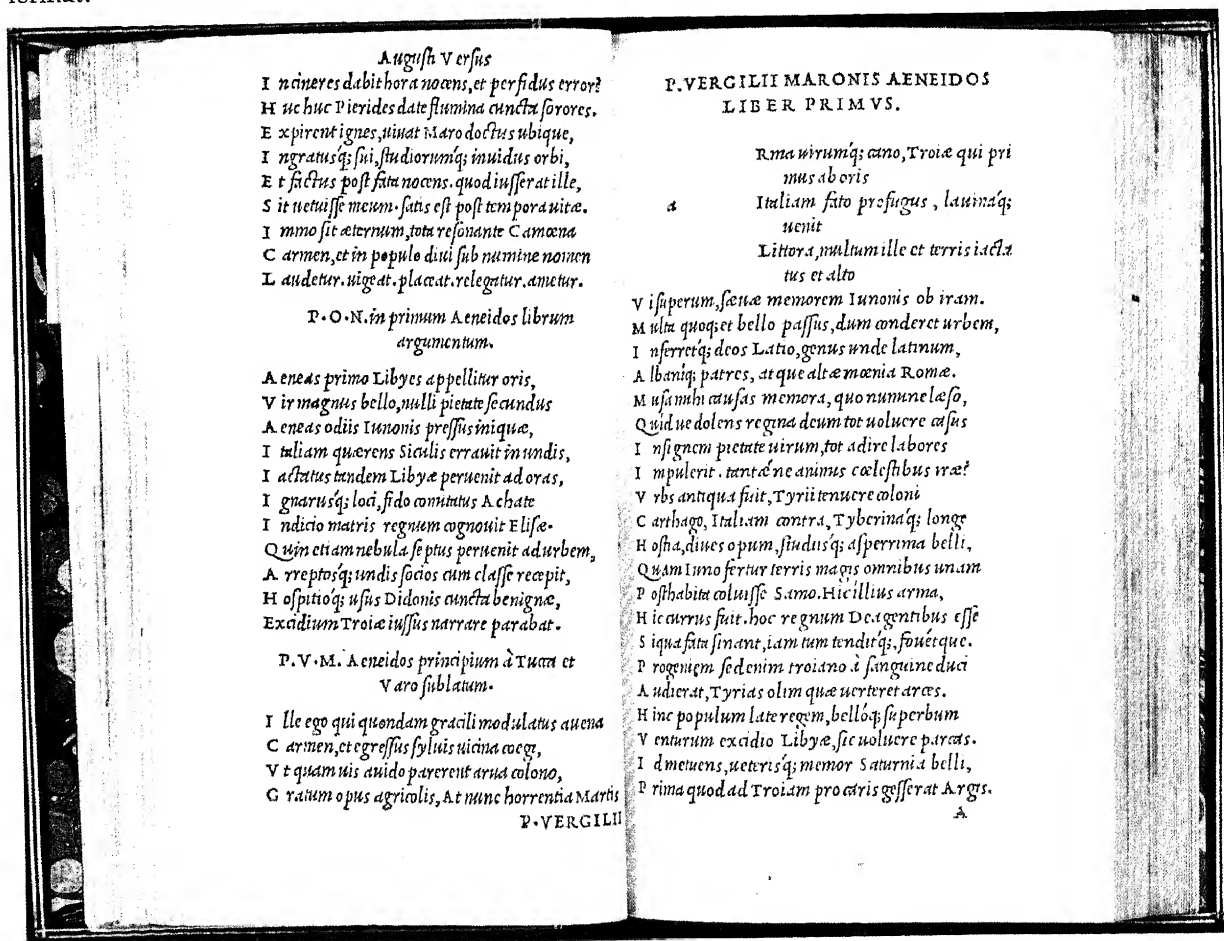 format.
Augusti Versus
I n cineres dabit hora nocens, et perfidus error?
H uc huc Pierides date flumina cuncta sorores.
E xpirent ignes, uiuat Maro doctus ubique,
I ngratusq; sui, studiorumq́; inuidus orbi,
E t factus post fata nocens. quod iusserat ille,
S it uetuisse meum. satis est post tempora uitæ.
I mmo sit æternum, tota resonante Camœna
C armen, et in populo diui sub numine nomen
L audetur. uigeat. placeat. relegatur. ametur.
P.O.N. in primum Aeneidos librum
argumentum.
A eneas primo Libyes appellitur oris,
V ir magnus bello, nulli pietate secundus
A eneas odiis Iunonis pressus iniquæ,
I taliam quærens Siculis errauit in undis,
I actatus tandem Libyæ peruenit ad oras,
I gnarusq́; loci, fido comitatus Achate
I ndicio matris regnum cognouit Elisæ.
Q uin etiam nebula septus peruenit ad urbem,
A rreptosq́; undis socios cum classe recepit,
H ospitioq́; usus Didonis cuncta benignæ,
Excidium Troiæ iussus narrare parabat.
P.V.M. Aeneidos principium à Tucca et
Varo sublatum.
I lle ego qui quondam gracili modulatus auena
C armen, et egressus syluis uicina coegi,
V t quamuis auido parerent arua colono,
G ratum opus agricolis, At nunc horrentia Martis
P.VERGILII
P.VERGILII MARONIS AENEIDOS
LIBER PRIMVS.
a Rma uirumq́; cano, Troiæ qui pri
mus ab oris
Italiam fato profugus, lauinaq́;
uenit
Littora, multum ille et terris iacta
tus et alto
V i superum, sæuæ memorem Iunonis ob iram.
M ulta quoq; et bello passus, dum conderet urbem,
I nferretq́; deos Latio, genus unde latinum,
A lbaniq́; patres, atque altæ mœnia Romæ.
M usa mihi causas memora, quo numine læso,
Q uid ue dolens regina deum tot uoluere casus
I nsignem pietate uirum, tot adire labores
I mpulerit. tantæ ne animus cœlestibus iræ?
V rbs antiqua fuit, Tyrii tenuere coloni
C arthago, Italiam contra, Tyberinaq́; longe
H ostia, diues opum, studiisq́; asperrima belli,
Q uam Iuno fertur terris magis omnibus unam
P osthabita coluisse Samo. Hic illius arma,
H ic currus fuit. hoc regnum Dea gentibus esse
S i qua fata sinant, iam tum tenditq́;, fouétque.
P rogeniem sed enim troiano à sanguine duci
A udierat, Tyrias olim quæ uerteret arces.
H inc populum late regem, belloq́; superbum
V enturum excidio Libyæ, sic uoluere parcas.
I d metuens, ueterisq́; memor Saturnia belli,
P rima quod ad Troiam pro caris gesserat Argis.
A